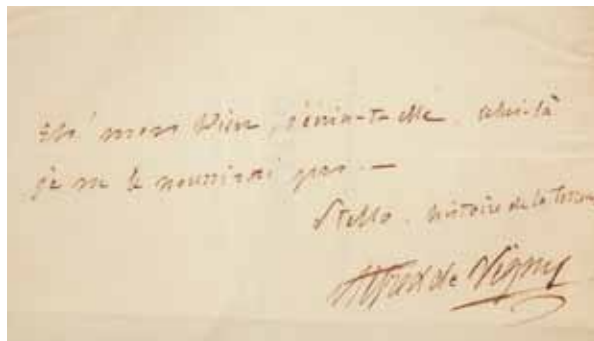 Ah! mon Dieu, s'écria-t-elle, celui-là
je ne le nourrirai pas. —
Stello. histoire de la terreur
Alfred de Vigny